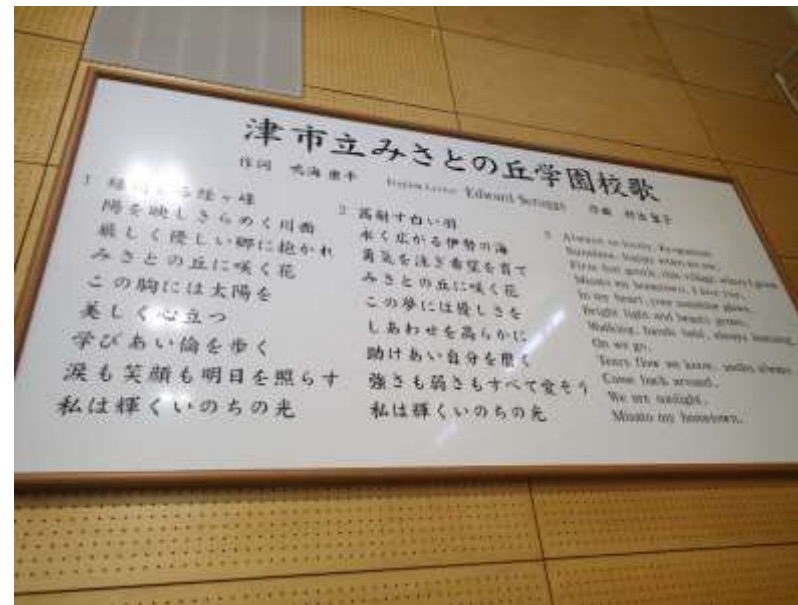 津市立みさとの丘学園校歌
作詞 鳴海康平 English Lyrics Edward Scruggs 作曲
1
経ヶ峰
陽を映しきらめく川面
厳しく優しい郷に抱かれ
みさとの丘に咲く花
この胸には太陽を
美しく心立つ
学びあい倫を歩く
涙も笑顔も明日を照らす
私は輝くいのちの光
2 高射す白い羽
永く広がる伊勢の海
勇気を注ぎ希望を育て
みさとの丘に咲く花
この夢には優しさを
しあわせを高らかに
助けあい自分を磨く
強さも弱さもすべて愛そう
私は輝くいのちの光
3 Always so lovely, Kyogamine,
Sunshine, happy
Firm but gentle, this village where I grow
Misato my hometown, I love you,
In my heart, your sunshine glows,
Bright light and beauty grows,
Walking, hands held, always learning,
On we go,
Tears flow we know, smiles always
Come back around,
We are sunlight,
Misato my hometown.